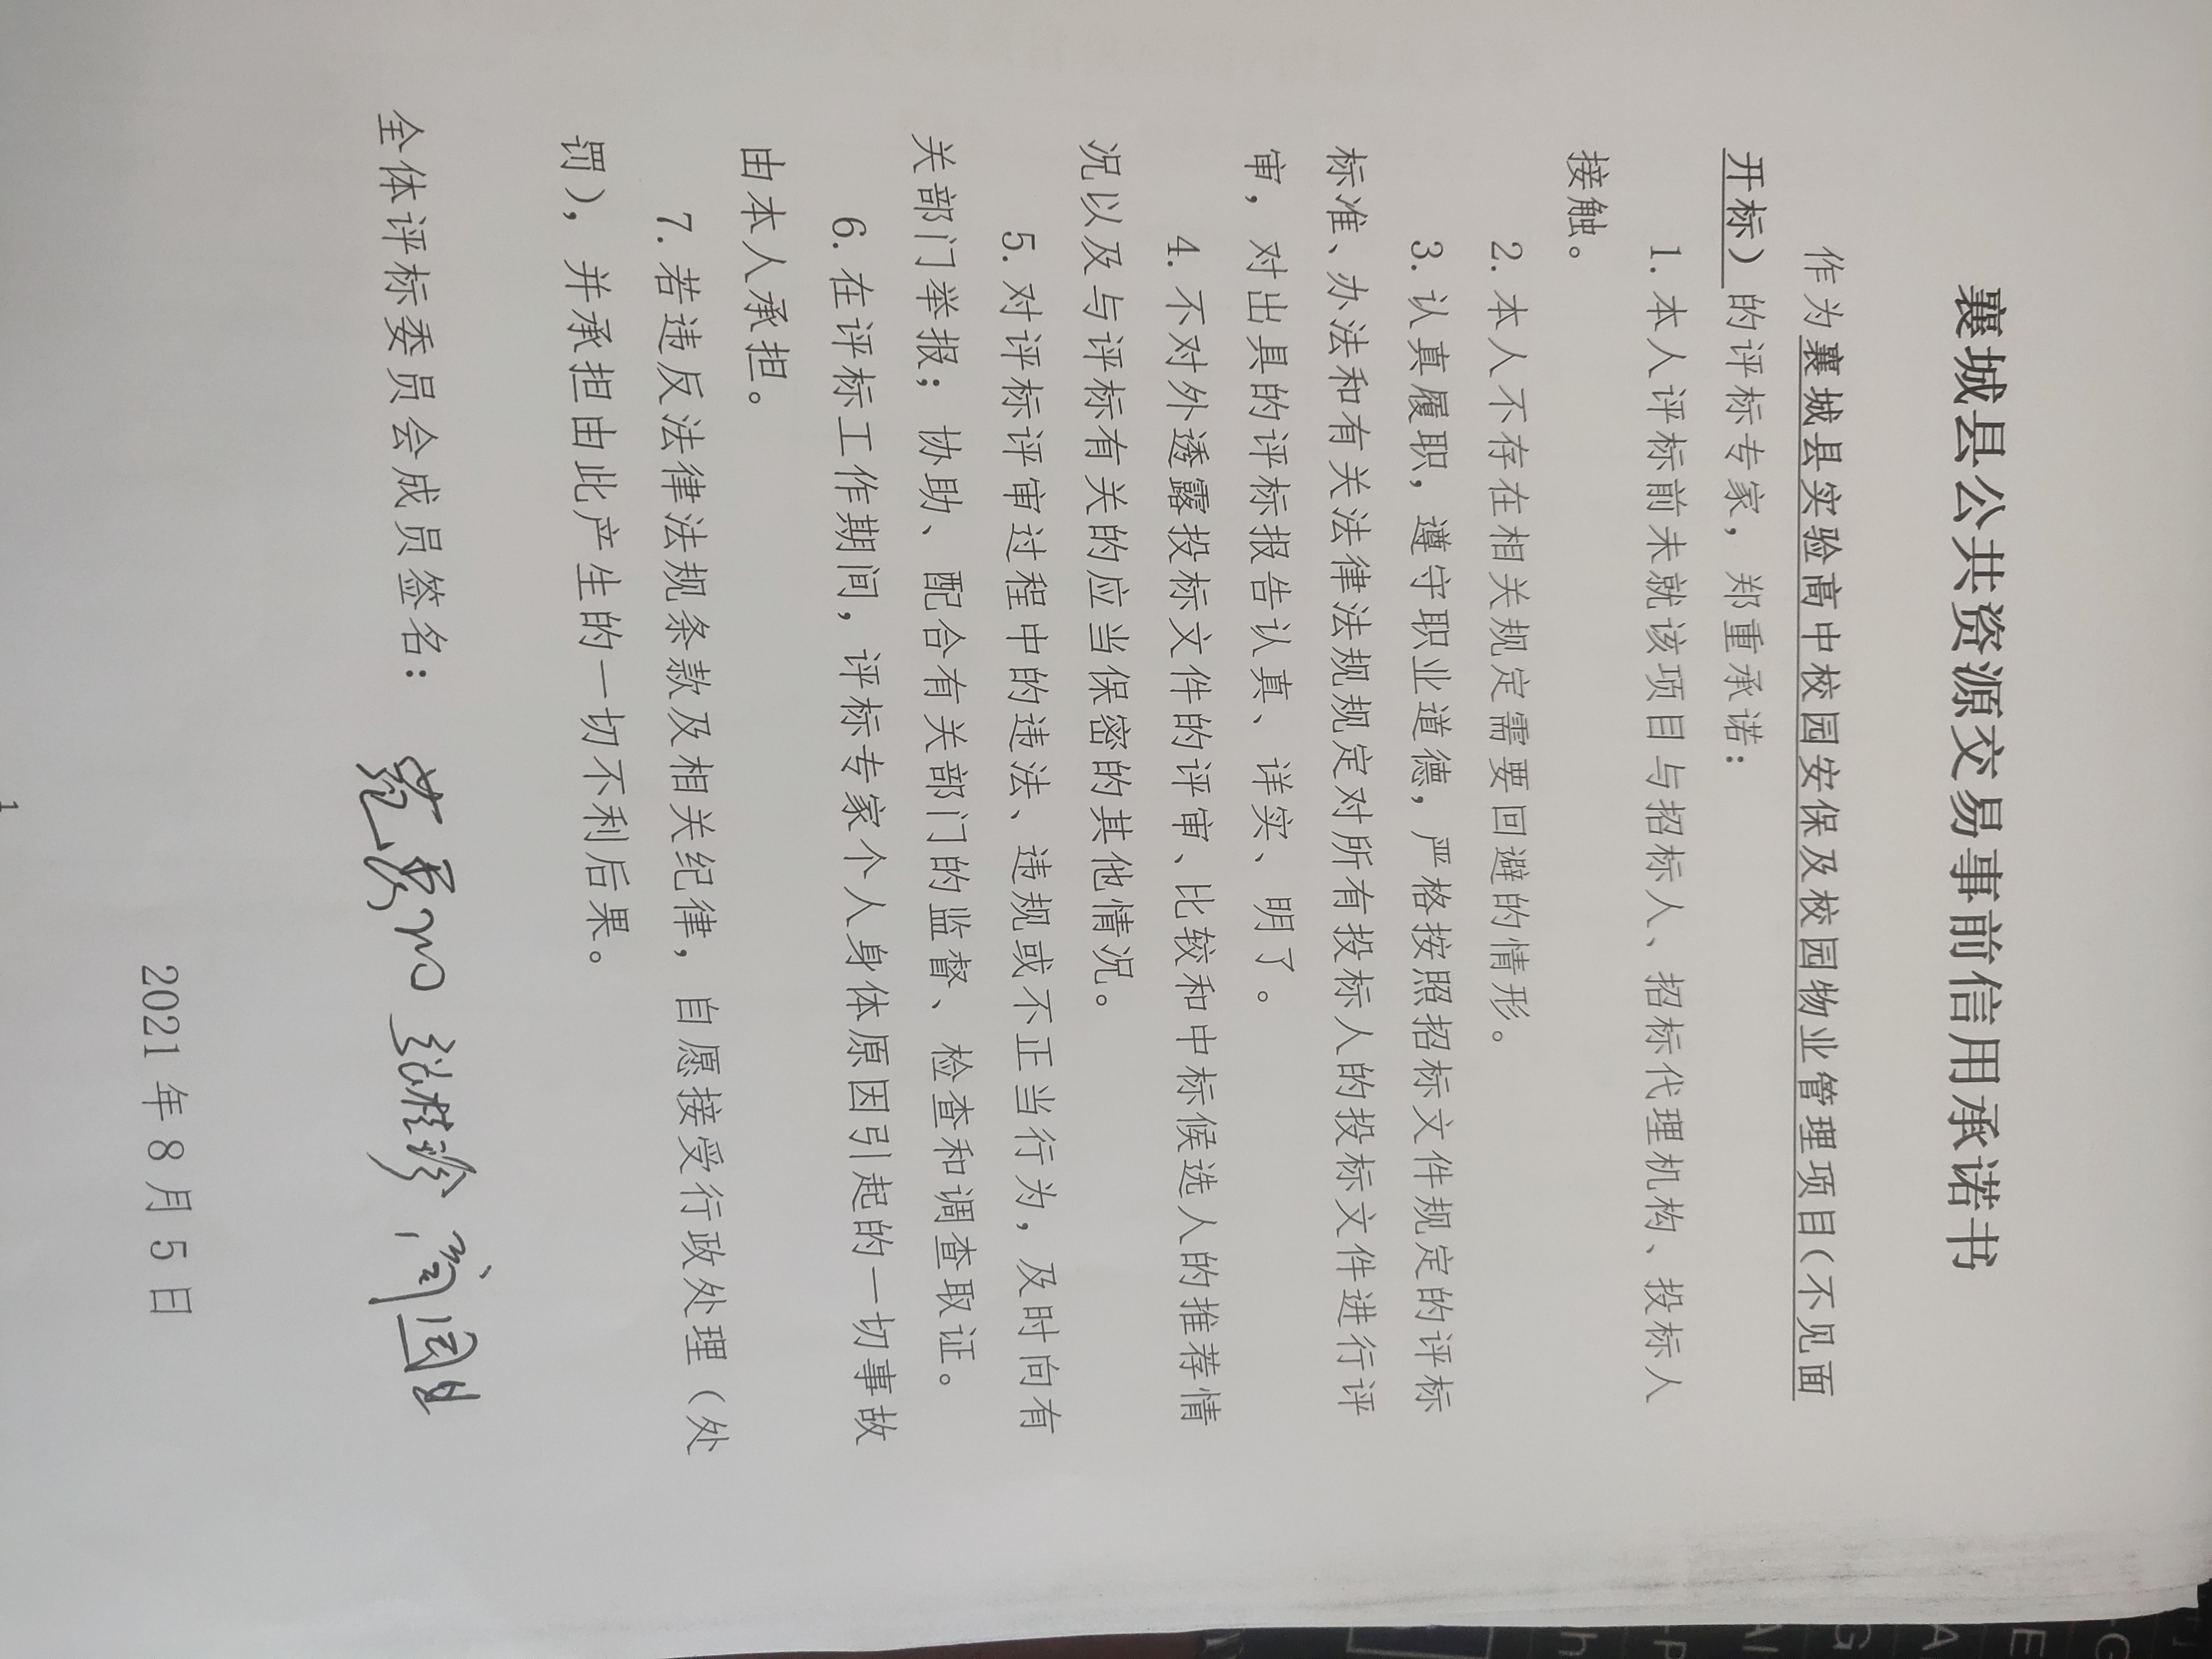 襄城县公共资源交易事前信用承诺书
作为襄城县实验高中校园安保及校园物业管理项目(不见面
开标)的评标专家，郑重承诺：
1.本人评标前未就该项目与招标人、招标代理机构、投标人
接触。
2.本人不存在相关规定需要回避的情形。
3.认真履职，遵守职业道德，严格按照招标文件规定的评标
标准、办法和有关法律法规规定对所有投标人的投标文件进行评
审，对出具的评标报告认真、详实、明了。
4.不对外透露投标文件的评审、比较和中标候选人的推荐情
况以及与评标有关的应当保密的其他情况。
5.对评标评审过程中的违法、违规或不正当行为，及时向有
关部门举报；协助、配合有关部门的监督、检查和调查取证。
6.在评标工作期间，评标专家个人身体原因引起的一切事故
由本人承担。
7.若违反法律法规条款及相关纪律，自愿接受行政处理（处
罚），并承担由此产生的一切不利后果。
全体评标委员会成员签名：
2021年8月5日
1